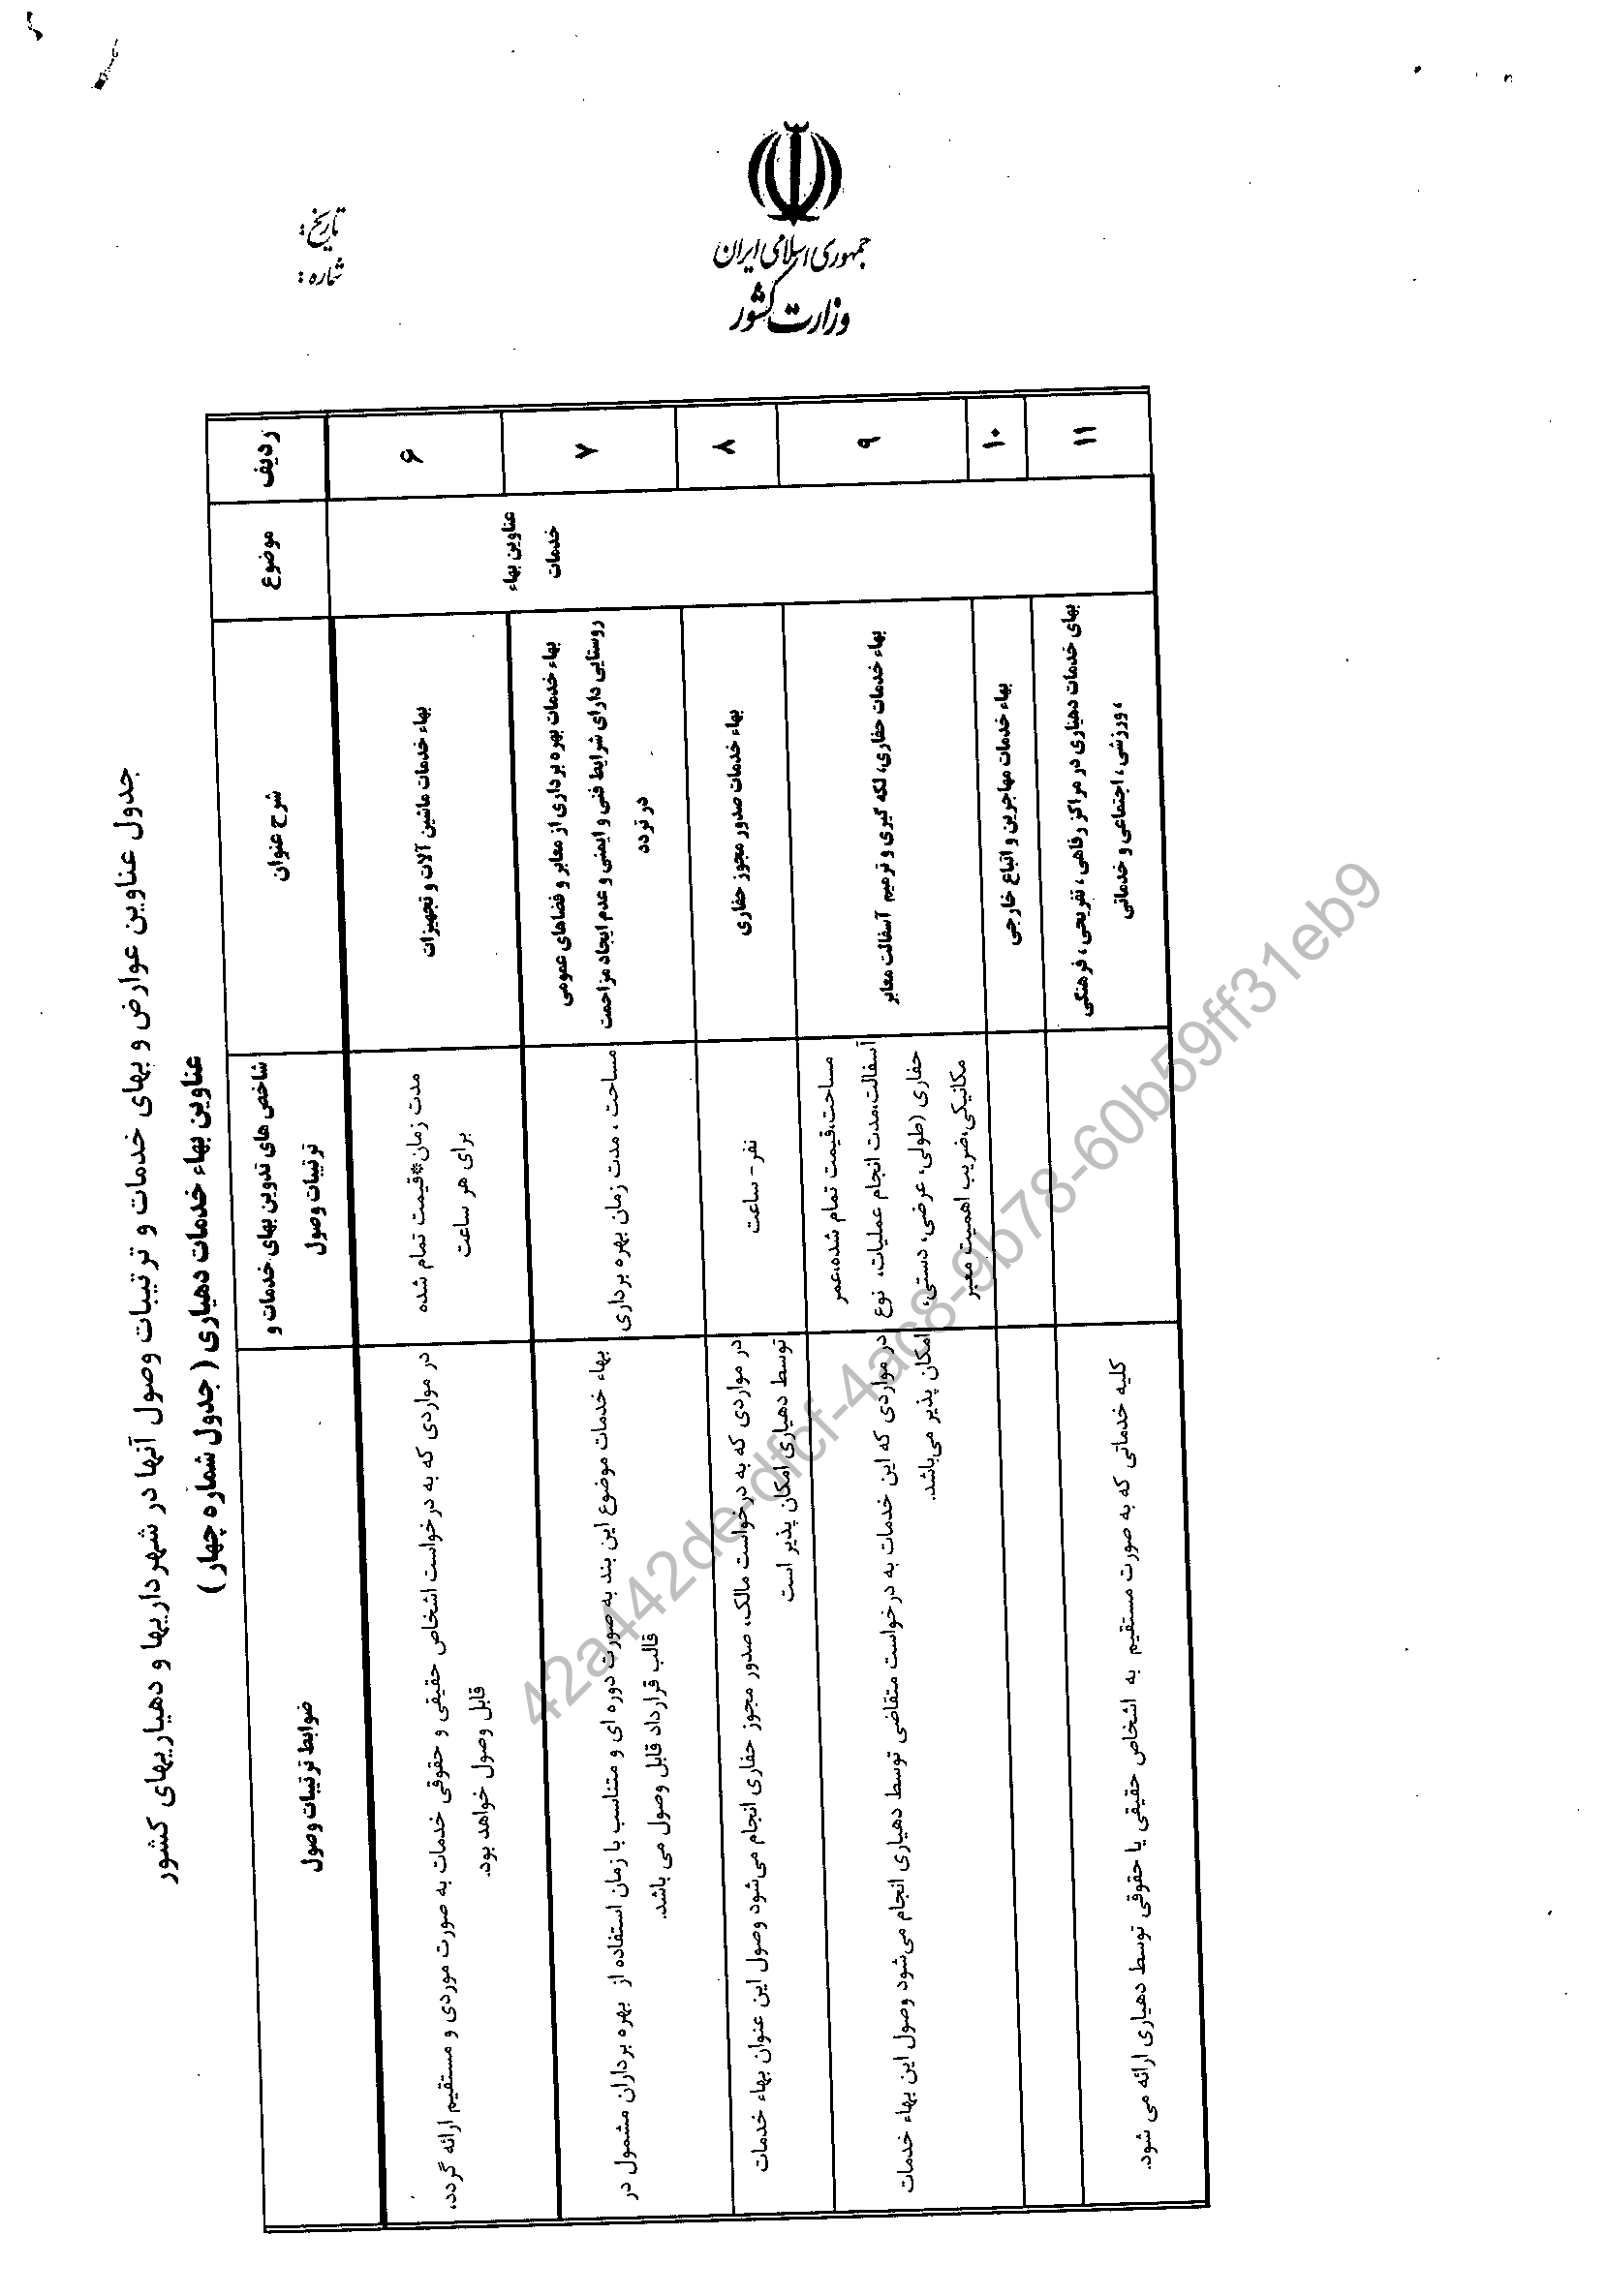 جمهوری اسلامی ایران
وزارت کشور
تاریخ :
شماره :
جدول عناوین عوارض و بهای خدمات و ترتیبات وصول آنها در شهرداریها و دهیاریهای کشور
عناوین بهاء خدمات دهیاری ( جدول شماره چهار )
ردیف
موضوع
شرح عنوان
شاخص های تدوین بهای خدمات و
ترتیبات وصول
ضوابط ترتیبات وصول
عناوین بهاء
خدمات
۶
بهاء خدمات ماشین آلات و تجهیزات
مدت زمان*قیمت تمام شده
برای هر ساعت
در مواردی که به درخواست اشخاص حقیقی و حقوقی خدمات به صورت موردی و مستقیم ارائه گردد،
قابل وصول خواهد بود.
۷
بهاء خدمات بهره برداری از معابر و فضاهای عمومی
روستایی دارای شرایط فنی و ایمنی و عدم ایجاد مزاحمت
در تردد
مساحت ، مدت زمان بهره برداری
بهاء خدمات موضوع این بند به صورت دوره ای و متناسب با زمان استفاده از بهره برداران مشمول در
قالب قرارداد قابل وصول می باشد.
۸
بهاء خدمات صدور مجوز حفاری
نفر- ساعت
در مواردی که به درخواست مالک، صدور مجوز حفاری انجام می‌شود وصول این عنوان بهاء خدمات
توسط دهیاری امکان پذیر است
۹
بهاء خدمات حفاری، لکه گیری و ترمیم آسفالت معابر
مساحت،قیمت تمام شده،عمر
آسفالت،مدت انجام عملیات، نوع
حفاری (طولی، عرضی، دستی،
مکانیکی،ضریب اهمیت معبر
در مواردی که این خدمات به درخواست متقاضی توسط دهیاری انجام می‌شود وصول این بهاء خدمات
امکان پذیر می‌باشد.
۱۰
بهاء خدمات مهاجرین و اتباع خارجی
۱۱
بهای خدمات دهیاری در مراکز رفاهی ، تفریحی ، فرهنگی
، ورزشی ، اجتماعی و خدماتی
کلیه خدماتی که به صورت مستقیم به اشخاص حقیقی یا حقوقی توسط دهیاری ارائه می شود.
42a442de-dfcf-4ac8-9b78-60b59ff31eb9